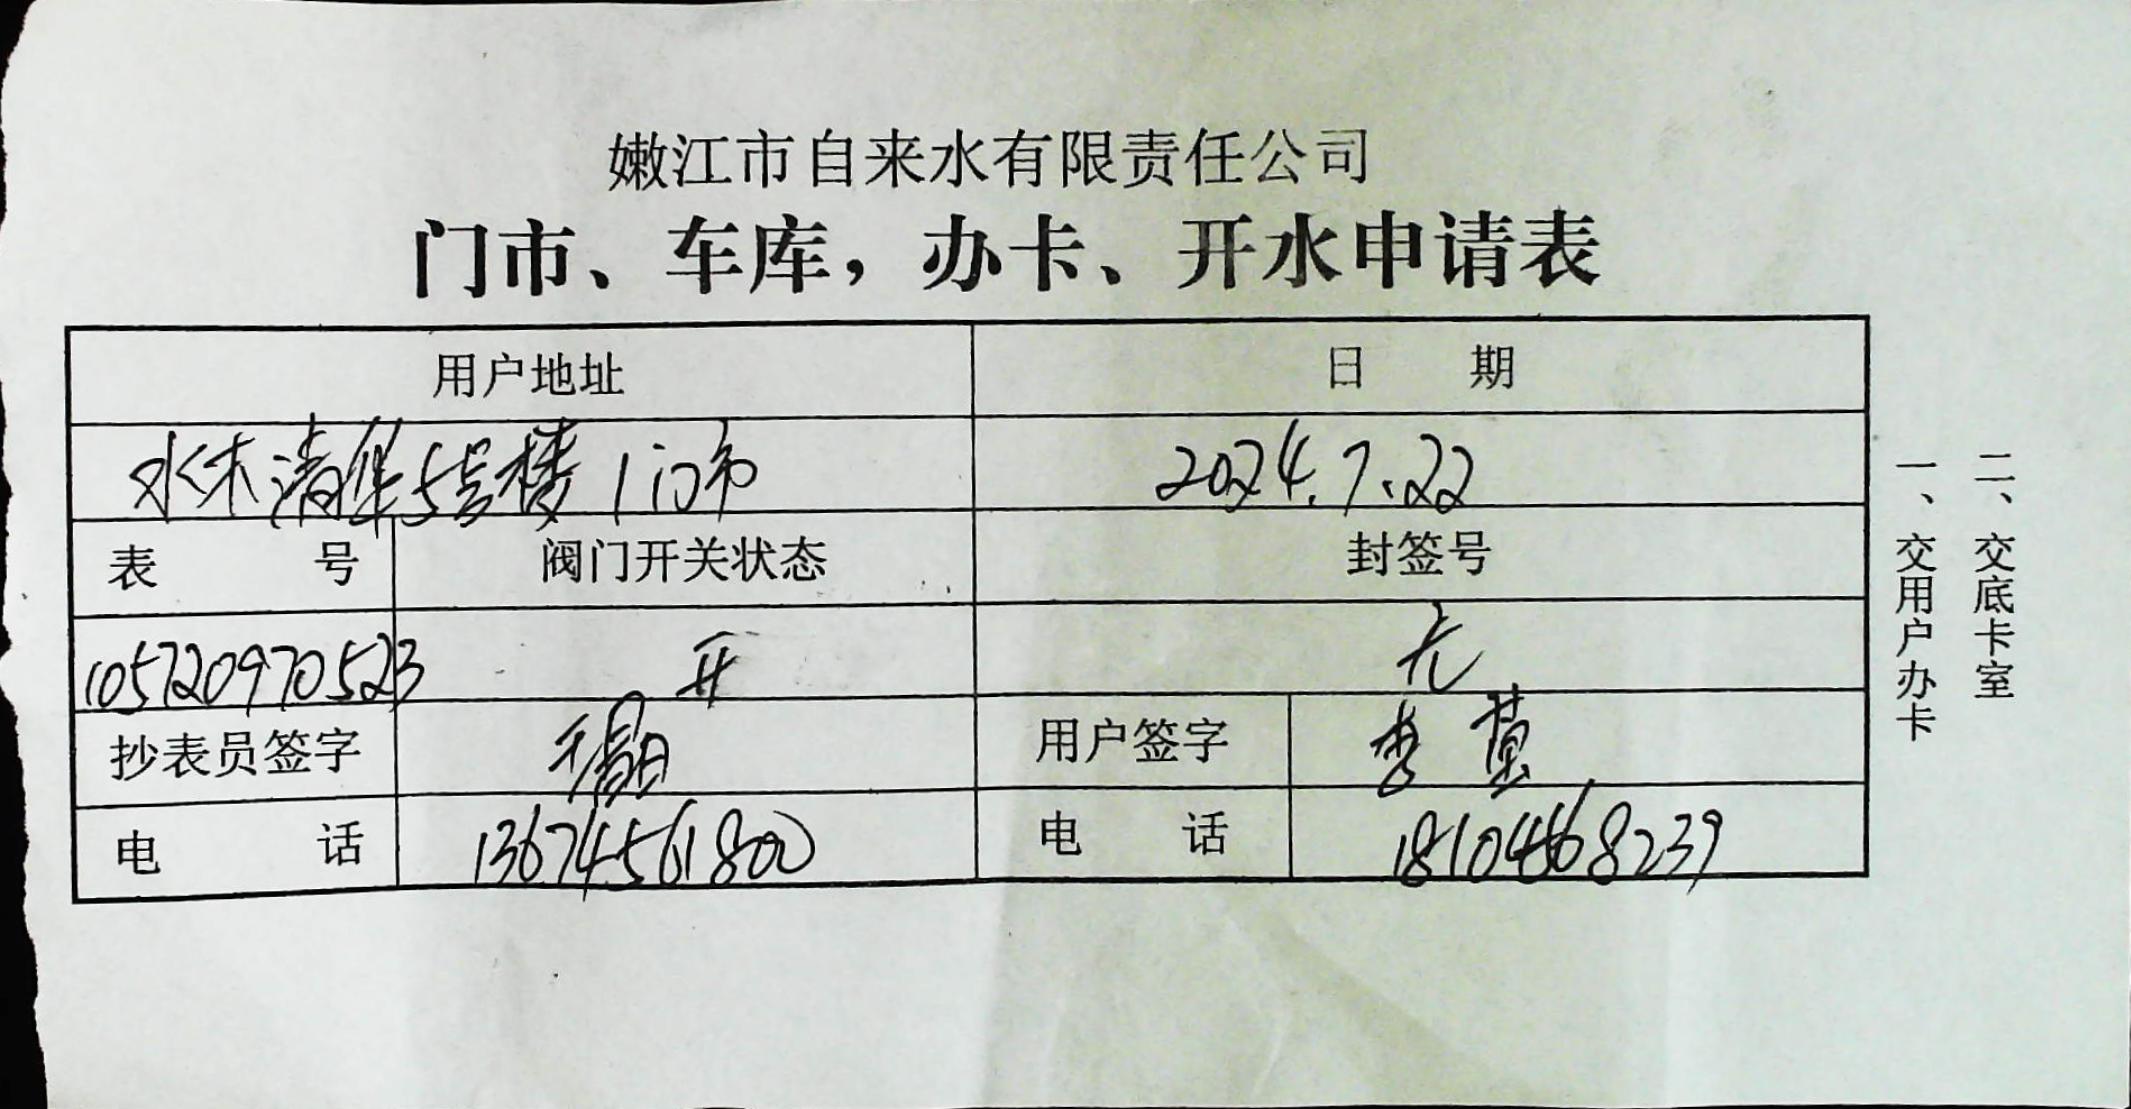 嫩江市自来水有限责任公司
门市、车库，办卡、开水申请表
用户地址 日 期
水木清华5号楼1门市 2024.7.22
表 号 阀门开关状态 封签号
105720970523 开 无
抄表员签字 用户签字 李
电 话 13674561800 电 话 18104568239
一、交用户办卡
二、交底卡室